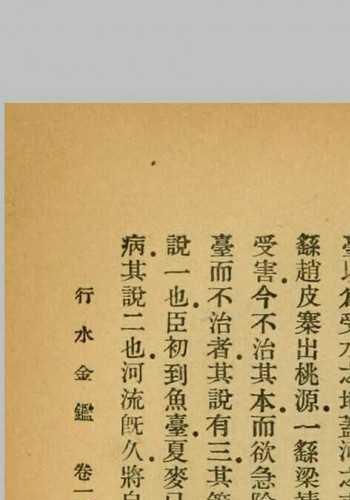 受水之地蓋河之
繇趙皮寨出桃源一繇梁靖
受害今不治其本而欲急除
臺而不治者其說有三其第
說一也臣初到魚臺夏麥已
病其說二也河流旣久將自
行水金鑑 卷一